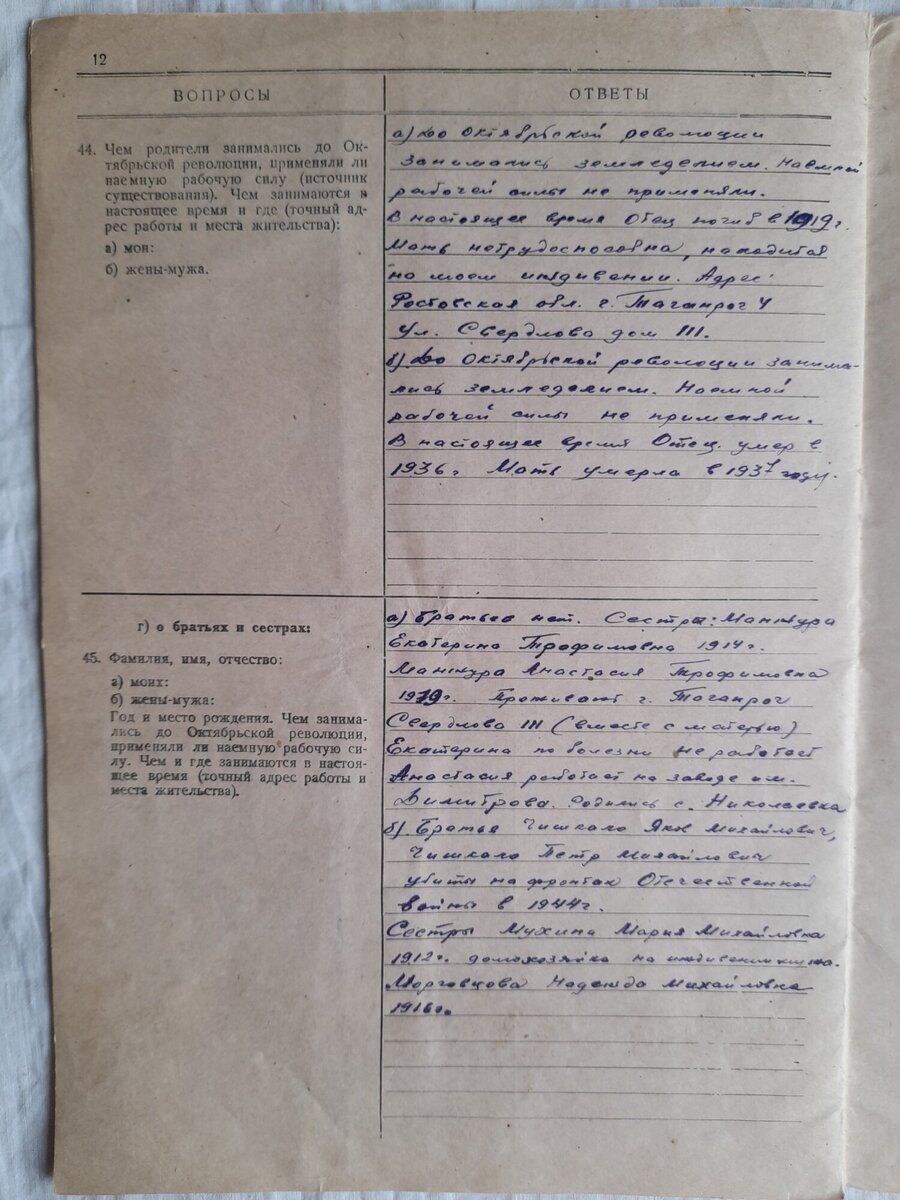 12
ВОПРОСЫ
ОТВЕТЫ
44. Чем родители занимались до Ок-
тябрьской революции, применяли ли
наемную рабочую силу (источник
существования). Чем занимаются в
настоящее время и где (точный ад-
рес работы и места жительства):
а) мои:
б) жены-мужа.
а) до Октябрьской революции
занимались земледелием. Наемной
рабочей силы не применяли.
В настоящее время Отец погиб в 1919 г.
Мать нетрудоспособна, находится
на моем иждивении. Адрес:
Ростовская обл. г. Таганрог 4
ул. Свердлова дом 111.
б) До Октябрьской революции занима-
лись земледелием. Наемной
рабочей силы не применяли.
В настоящее время Отец умер в
1936 г Мать умерла в 1937 году.
г) о братьях и сестрах:
45. Фамилия, имя, отчество:
а) моих:
б) жены-мужа:
Год и место рождения. Чем занима-
лись до Октябрьской революции,
применяли ли наемную рабочую си-
лу. Чем и где занимаются в настоя-
щее время (точный адрес работы и
места жительства).
а) Братьев нет. Сестры: Манжура
Екатерина Трофимовна 1914 г.
Манжура Анастасия Трофимовна
1919г. Проживают г. Таганрог
Свердлова 111 (вместе с матерью)
Екатерина по болезни не работает
Анастасия работает на заводе им.
Димитрова. Родились с. Николаевка
б) Братья Чишкало Яков Михайлович,
Чишкало Петр Михайлович
убиты на фронтах Отечественной
войны в 1944 г.
Сестры Мухина Мария Михайловна
1912 г. домохозяйка на иждивении мужа.
Морговцова Надежда Михайловна
1916 г.